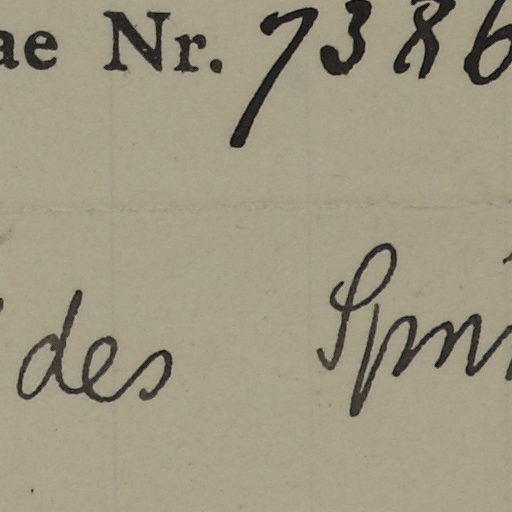 ae Nr. 7386
des